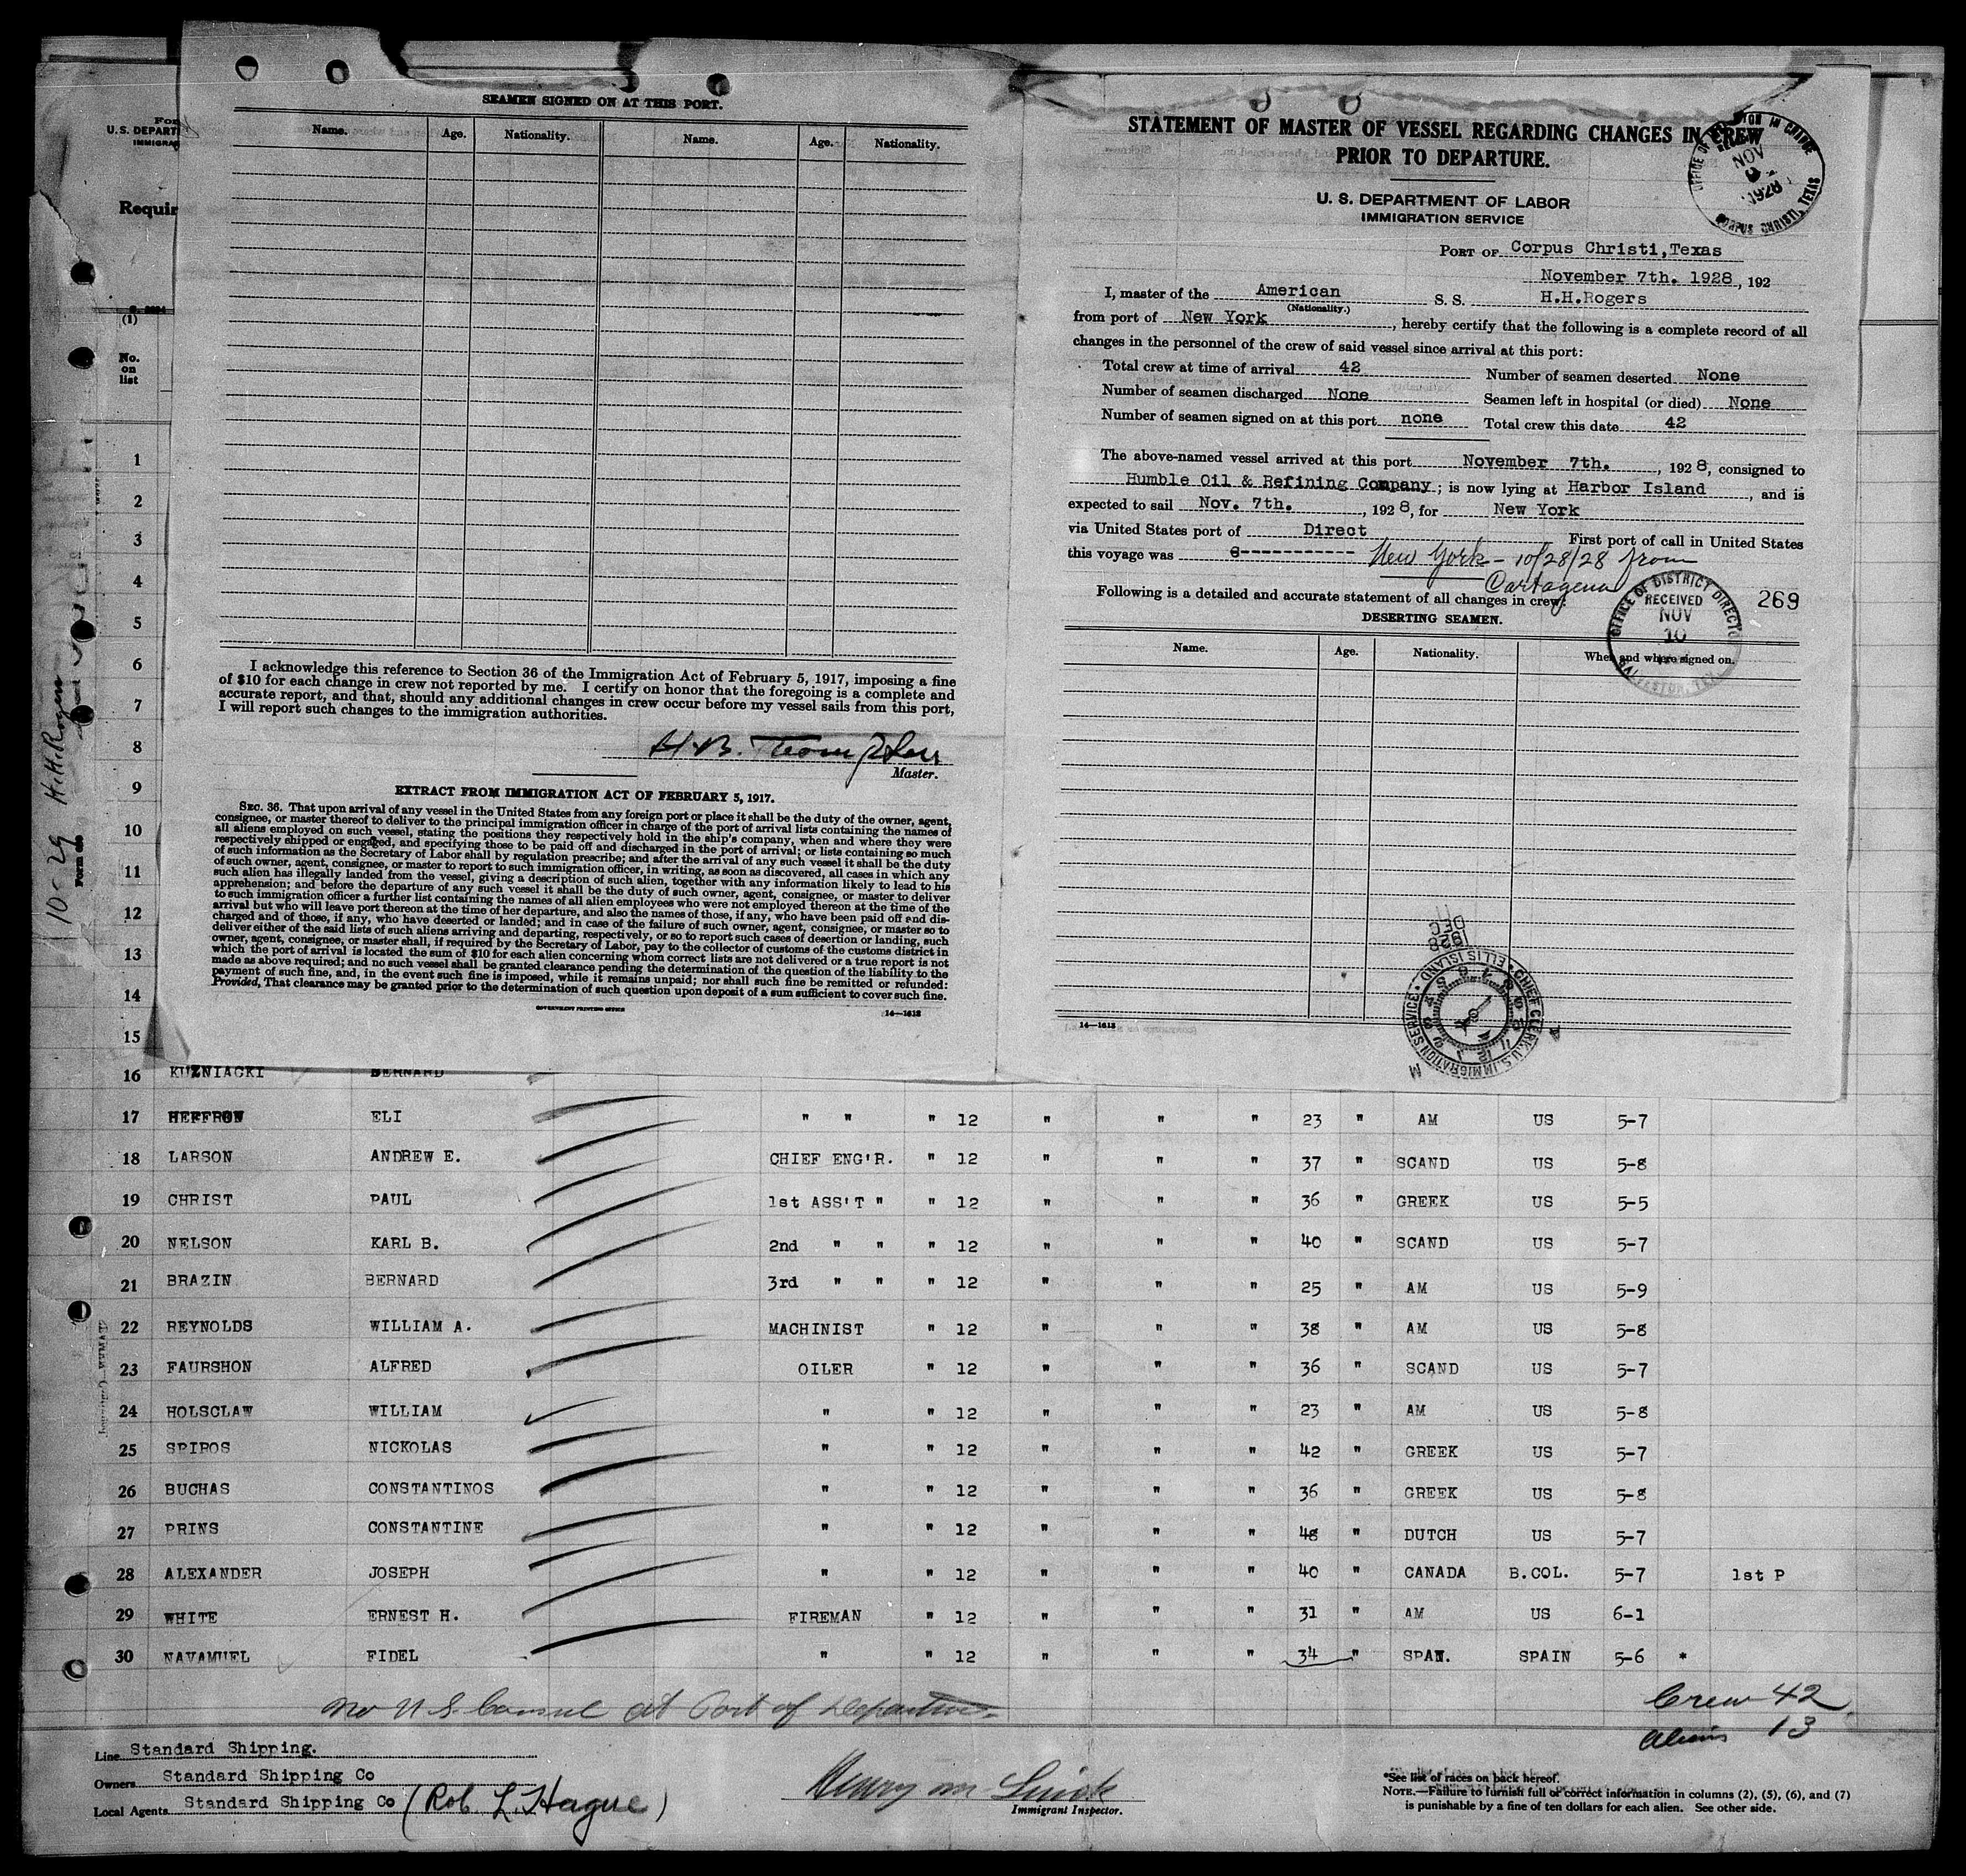 SEAMEN SIGNED ON AT THIS PORT.
Name. Age. Nationality. Name. Age. Nationality.
I acknowledge this reference to Section 36 of the Immigration Act of February 5, 1917, imposing a fine
of $10 for each change in crew not reported by me. I certify on honor that the foregoing is a complete and
accurate report, and that, should any additional changes in crew occur before my vessel sails from this port,
I will report such changes to the immigration authorities.
H.B. Thompson
Master.
EXTRACT FROM IMMIGRATION ACT OF FEBRUARY 5, 1917.
SEC. 36. That upon arrival of any vessel in the United States from any foreign port or place it shall be the duty of the owner, agent,
consignee, or master thereof to deliver to the principal immigration officer in charge of the port of arrival lists containing the names of
all aliens employed on such vessel, stating the positions they respectively hold in the ship's company, when and where they were
respectively shipped or engaged, and specifying those to be paid off and discharged in the port of arrival; or lists containing so much
of such information as the Secretary of Labor shall by regulation prescribe; and after the arrival of any such vessel it shall be the duty
of such owner, agent, consignee, or master to report to such immigration officer, in writing, as soon as discovered, all cases in which any
such alien has illegally landed from the vessel, giving a description of such alien, together with any information likely to lead to his
apprehension; and before the departure of any such vessel it shall be the duty of such owner, agent, consignee, or master to deliver
to such immigration officer a further list containing the names of all alien employees who were not employed thereon at the time of the
arrival but who will leave port thereon at the time of her departure, and also the names of those, if any, who have been paid off and dis-
charged and of those, if any, who have deserted or landed; and in case of the failure of such owner, agent, consignee, or master so to
deliver either of the said lists of such aliens arriving and departing, respectively, or so to report such cases of desertion or landing, such
owner, agent, consignee, or master shall, if required by the Secretary of Labor, pay to the collector of customs of the customs district in
which the port of arrival is located the sum of $10 for each alien concerning whom correct lists are not delivered or a true report is not
made as above required; and no such vessel shall be granted clearance pending the determination of the question of the liability to the
payment of such fine, and, in the event such fine is imposed, while it remains unpaid; nor shall such fine be remitted or refunded:
Provided, That clearance may be granted prior to the determination of such question upon deposit of a sum sufficient to cover such fine.
GOVERNMENT PRINTING OFFICE 14—1613
STATEMENT OF MASTER OF VESSEL REGARDING CHANGES IN CREW
PRIOR TO DEPARTURE.
U. S. DEPARTMENT OF LABOR
IMMIGRATION SERVICE
NOV 1928
CORPUS CHRISTI, TEXAS
PORT OF Corpus Christi,Texas
November 7th. 1928, 192
I, master of the American S. S. H.H.Rogers
(Nationality.)
from port of New York, hereby certify that the following is a complete record of all
changes in the personnel of the crew of said vessel since arrival at this port:
Total crew at time of arrival 42 Number of seamen deserted None
Number of seamen discharged None Seamen left in hospital (or died) None
Number of seamen signed on at this port none Total crew this date 42
The above-named vessel arrived at this port November 7th., 1928, consigned to
Humble Oil & Refining Company; is now lying at Harbor Island, and is
expected to sail Nov. 7th., 1928, for New York
via United States port of Direct First port of call in United States
this voyage was New York - 10/28/28 from
Cartagena
Following is a detailed and accurate statement of all changes in crew:
DESERTING SEAMEN.
OFFICE OF DISTRICT DIRECTOR
RECEIVED
NOV
10
269
Name. Age. Nationality. When and where signed on.
DEC
1928
CHIEF CLERK, U.S. IMMIGRATION SERVICE • ELLIS ISLAND
14—1613
U.S. DEPARTM
IMMIGRA
Requir
(1)
No.
on
list
10-29 H.H.Rogers
1
2
3
4
5
6
7
8
9
10
11
12
13
14
15
16 KUZNIACKI BERNARD
17 HEFFRON ELI " " " 12 " " " 23 " AM US 5-7
18 LARSON ANDREW E. CHIEF ENG'R. " 12 " " " 37 " SCAND US 5-8
19 CHRIST PAUL 1st ASS'T " " 12 " " " 36 " GREEK US 5-5
20 NELSON KARL B. 2nd " " " 12 " " " 40 " SCAND US 5-7
21 BRAZIN BERNARD 3rd " " " 12 " " " 25 " AM US 5-9
22 REYNOLDS WILLIAM A. MACHINIST " 12 " " " 38 " AM US 5-8
23 FAURSHON ALFRED OILER " 12 " " " 36 " SCAND US 5-7
24 HOLSCLAW WILLIAM " " 12 " " " 23 " AM US 5-8
25 SPIROS NICKOLAS " " 12 " " " 42 " GREEK US 5-7
26 BUCHAS CONSTANTINOS " " 12 " " " 36 " GREEK US 5-8
27 PRINS CONSTANTINE " " 12 " " " 48 " DUTCH US 5-7
28 ALEXANDER JOSEPH " " 12 " " " 40 " CANADA B.COL. 5-7 1st P
29 WHITE ERNEST H. FIREMAN " 12 " " " 31 " AM US 6-1
30 NAVAMUEL FIDEL " " 12 " " " 34 " SPAN. SPAIN 5-6 *
No U S Consul at Port of Departure.
Crew 42
Aliens 13
Line Standard Shipping.
Owners Standard Shipping Co
Local Agents Standard Shipping Co (Rob L. Hague)
Immigrant Inspector.
*See list of races on back hereof.
NOTE.—Failure to furnish full or correct information in columns (2), (5), (6), and (7)
is punishable by a fine of ten dollars for each alien. See other side.